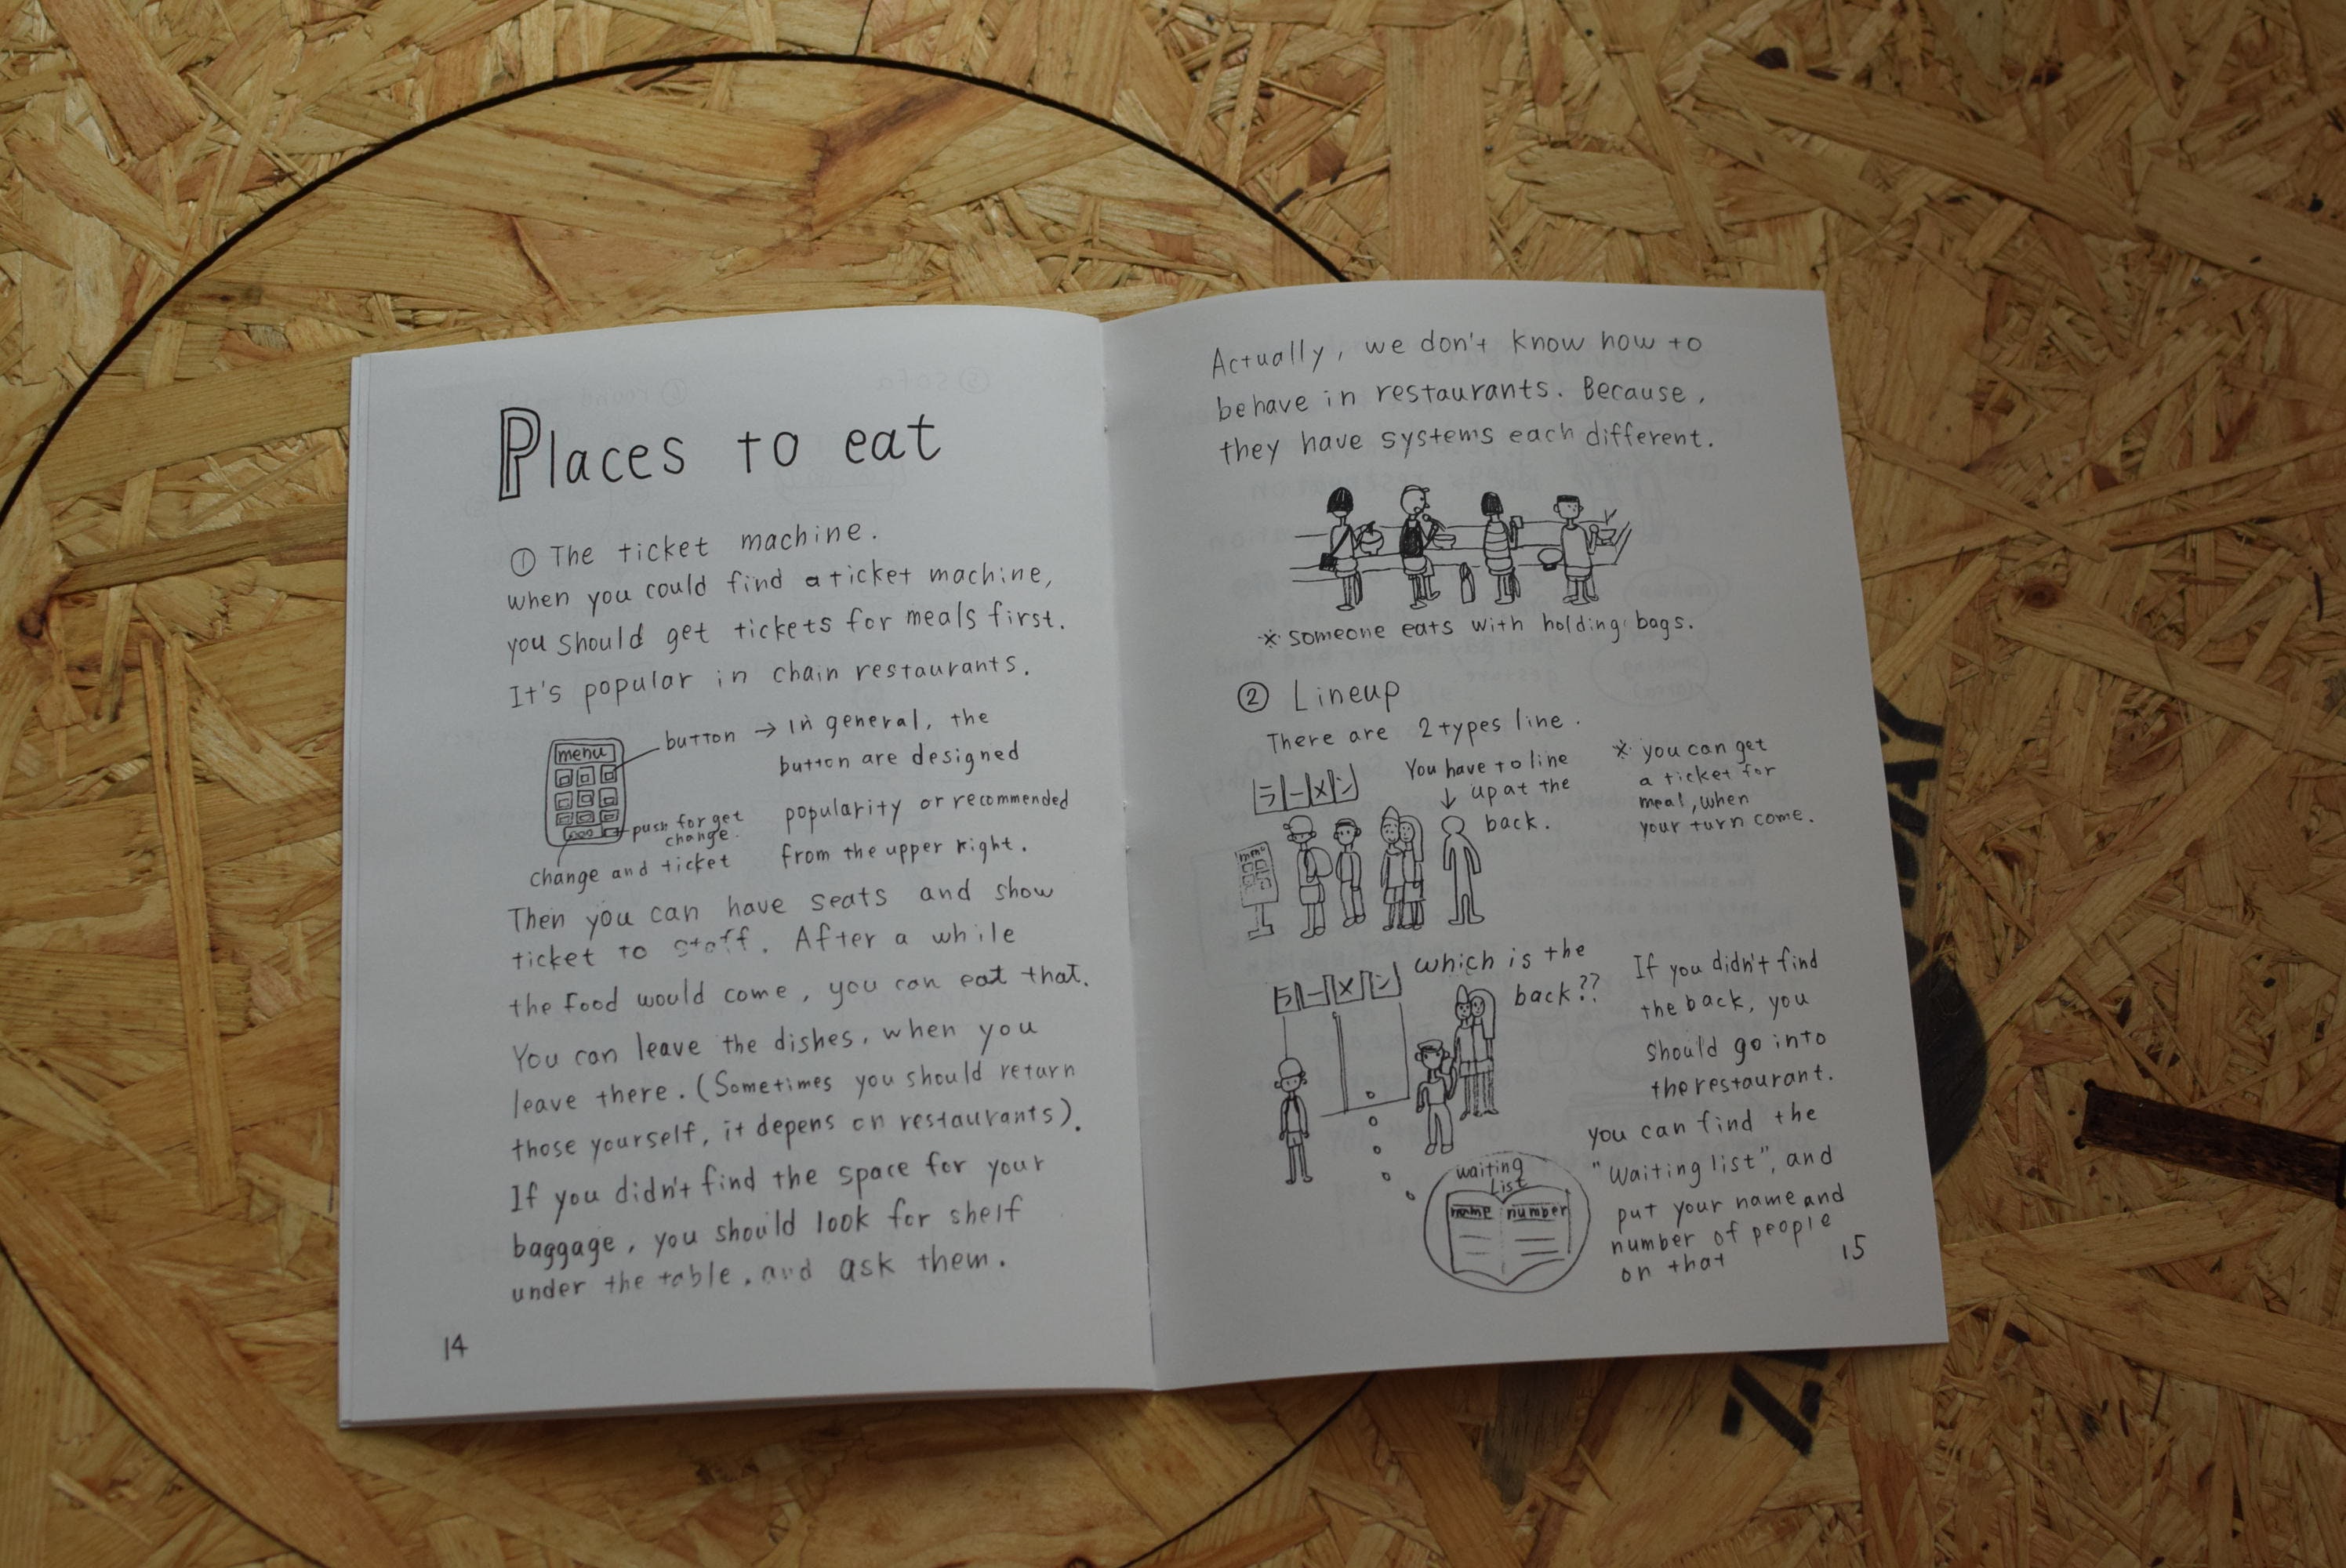 Places to eat
① The ticket machine.
when you could find a ticket machine,
you should get tickets for meals first.
It's popular in chain restaurants.
menu
button → In general, the
button are designed
popularity or recommended
from the upper right.
push for get
change.
change and ticket
Then you can have seats and show
ticket to staff. After a while
the food would come, you can eat that.
You can leave the dishes, when you
leave there. (Sometimes you should return
those yourself, it depens on restaurants).
If you didn't find the space for your
baggage, you should look for shelf
under the table. and ask them.
14
Actually, we don't know how to
behave in restaurants. Because,
they have systems each different.
※ someone eats with holding bags.
② Lineup
There are 2 types line.
ラーメン
menu
You have to line
up at the
↓ back.
※ you can get
a ticket for
meal, when
your turn come.
ラーメン
which is the
back??
waiting
List
name number
If you didn't find
the back, you
should go into
the restaurant.
you can find the
"Waiting list", and
put your name and
number of people
on that
15
WAY